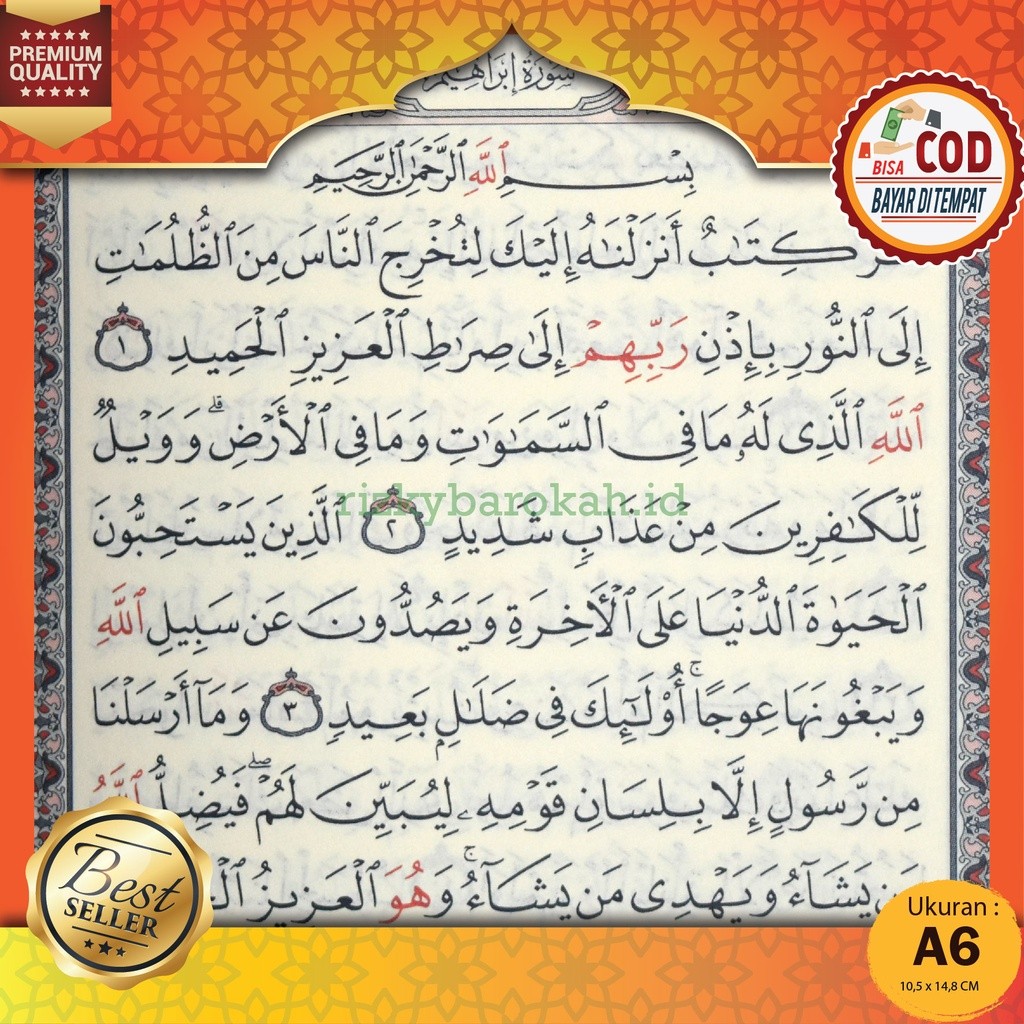 PREMIUM
QUALITY
سورة إبراهيم
BISA
COD
BAYAR DI TEMPAT
بِسْمِ ٱللَّهِ ٱلرَّحْمَٰنِ ٱلرَّحِيمِ
كِتَٰبٌ أَنزَلْنَٰهُ إِلَيْكَ لِتُخْرِجَ ٱلنَّاسَ مِنَ ٱلظُّلُمَٰتِ
إِلَى ٱلنُّورِ بِإِذْنِ رَبِّهِمْ إِلَىٰ صِرَٰطِ ٱلْعَزِيزِ ٱلْحَمِيدِ ١
ٱللَّهِ ٱلَّذِى لَهُۥ مَا فِى ٱلسَّمَٰوَٰتِ وَمَا فِى ٱلْأَرْضِ ۗ وَوَيْلٌ
لِّلْكَٰفِرِينَ مِنْ عَذَابٍ شَدِيدٍ ٢ ٱلَّذِينَ يَسْتَحِبُّونَ
rizkybarokah.id
ٱلْحَيَوٰةَ ٱلدُّنْيَا عَلَى ٱلْأَخِرَةِ وَيَصُدُّونَ عَن سَبِيلِ ٱللَّهِ
وَيَبْغُونَهَا عِوَجًا ۚ أُو۟لَٰٓئِكَ فِى ضَلَٰلٍۭ بَعِيدٍ ٣ وَمَآ أَرْسَلْنَا
مِن رَّسُولٍ إِلَّا بِلِسَانِ قَوْمِهِۦ لِيُبَيِّنَ لَهُمْ ۖ فَيُضِلُّ ٱللَّهُ
مَن يَشَآءُ وَيَهْدِى مَن يَشَآءُ ۚ وَهُوَ ٱلْعَزِيزُ
Best
SELLER
Ukuran :
A6
10,5 x 14,8 CM